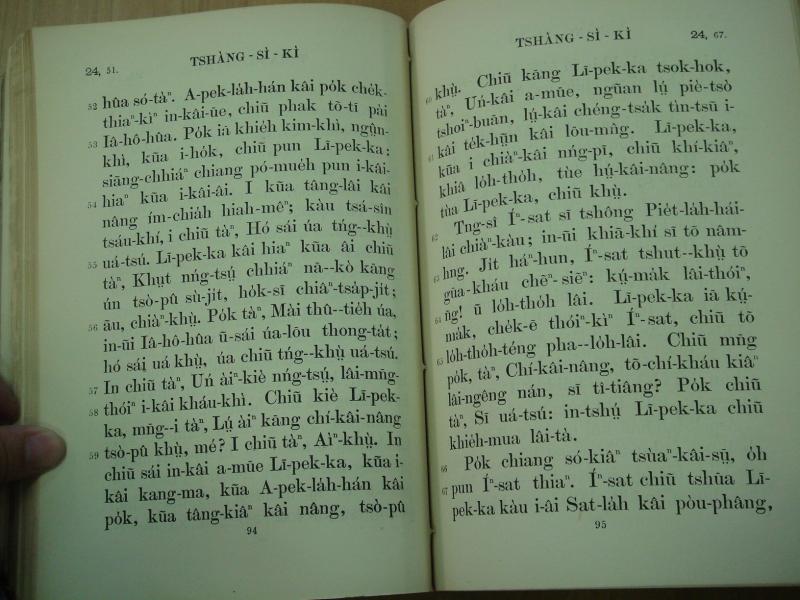 24, 51.
TSHÀNG - SÌ - KÌ
52 hûa só-tàⁿ. A-pek-la̍h-hán kâi po̍k che̍k-
thiaⁿ-kìⁿ in-kâi-ūe, chiū phak tō-tī pài
53 Iâ-hô-hûa. Po̍k iā khie̍h kim-khì, ngṳ̂n-
khì, kūa i-ho̍k, chiū pun Lī-pek-ka;
siāng-chhiáⁿ chiang pó-mue̍h pun i-kâi-
54 hiaⁿ kūa i-kâi-âi. I kūa tâng-lâi kâi
nâng ím-chia̍h hiah-mêⁿ; kàu tsá-sîn
tsáu-khí, i chiū tàⁿ, Hó sái úa tńg--khṳ̀
55 uá-tsú. Lī-pek-ka kâi hiaⁿ kūa âi chiū
tàⁿ, Khṳt nńg-tsṳ́ chhiáⁿ nā--kò kāng
ún tsò-pû sù-ji̍t, ho̍k-sī chiâⁿ-tsa̍p-ji̍t;
56 āu, chiàⁿ-khṳ̀. Po̍k tàⁿ, Mài thû--tie̍h úa,
in-ūi Iâ-hô-hûa ū-sái úa-lōu thong-ta̍t;
hó sái uá khṳ̀, úa chiū tńg--khṳ̀ uá-tsú.
57 In chiū tàⁿ, Uń àiⁿ-kiè nńg-tsṳ́, lâi-mn̄g-
58 thóiⁿ i-kâi kháu-khì. Chiū kiè Lī-pek-
ka, mn̄g--i tàⁿ, Lṳ́ àiⁿ kāng chí-kâi-nâng
59 tsò-pû khṳ̀, mé? I chiū tàⁿ, Aìⁿ-khṳ̀. In
chiū sái in-kâi a-mūe Lī-pek-ka, kūa i-
kâi kang-ma, kūa A-pek-la̍h-hán kâi
po̍k, kūa tâng-kiâⁿ kâi nâng, tsò-pû
94
TSHÀNG - SÌ - KÌ
24, 67.
60 khṳ̀. Chiū kāng Lī-pek-ka tsok-hok,
tàⁿ, Uń-kâi a-mūe, ngūan lṳ́ piè-tsò
tshoiⁿ-buān, lṳ́-kâi chéng-tsa̍k tìn-tsū i-
kâi te̍k-hṳ̄n kâi lōu-mn̂g.
61 Lī-pek-ka,
kūa i chiàⁿ-kâi nńg-pī, chiū khí-kiâⁿ,
khiâ lo̍h-tho̍h, tùe hṳ́-kâi-nâng: po̍k
tùa Lī-pek-ka, chiū khṳ̀.
62 Tng-sî Íⁿ-sat sī tshông Pie̍t-la̍h-hái-
lâi chiàⁿ-kàu; in-ūi khiā-khí sī tō nâm-
63 hng. Ji̍t háⁿ-hun, Íⁿ-sat tshut--khṳ̀ tō
gūa-kháu chēⁿ-siēⁿ: kṳ́-ma̍k lâi-thóiⁿ,
64 n̂g! ū lo̍h-tho̍h lâi. Lī-pek-ka iā kṳ́-
ma̍k, che̍k-ē thóiⁿ-kìⁿ Íⁿ-sat, chiū tō
65 lo̍h-tho̍h-téng pha--lo̍h-lâi. Chiū mn̄g
po̍k, tàⁿ, Chí-kâi-nâng, tō-chí-kháu kiâⁿ
lâi-ngêng nán, sī tī-tiâng? Po̍k chiū
tàⁿ, Sī uá-tsú: in-tshṳ́ Lī-pek-ka chiū
khie̍h-mua lâi-tà.
66 Po̍k chiang só-kiâⁿ tsùaⁿ-kâi-sṳ̄, o̍h
67 pun Íⁿ-sat thiaⁿ. Íⁿ-sat chiū tshūa Lī-
pek-ka kàu i-âi Sat-la̍h kâi pòu-phâng,
95